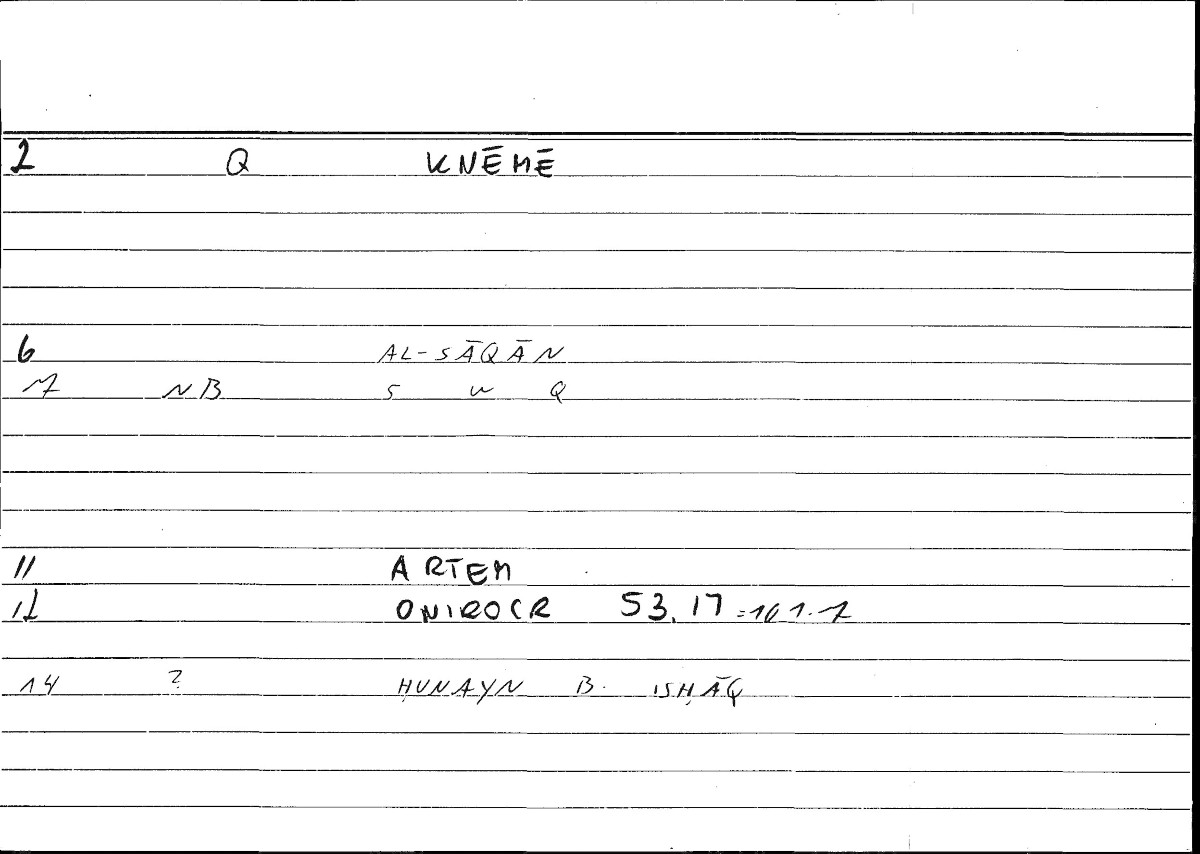 2 Q KNĒMĒ
6 AL-SĀQĀN
7 NB S W Q
11 ARTEM
12 ONIROCR 53.17
14 ? ḤUNAYN B. ISḤĀQ